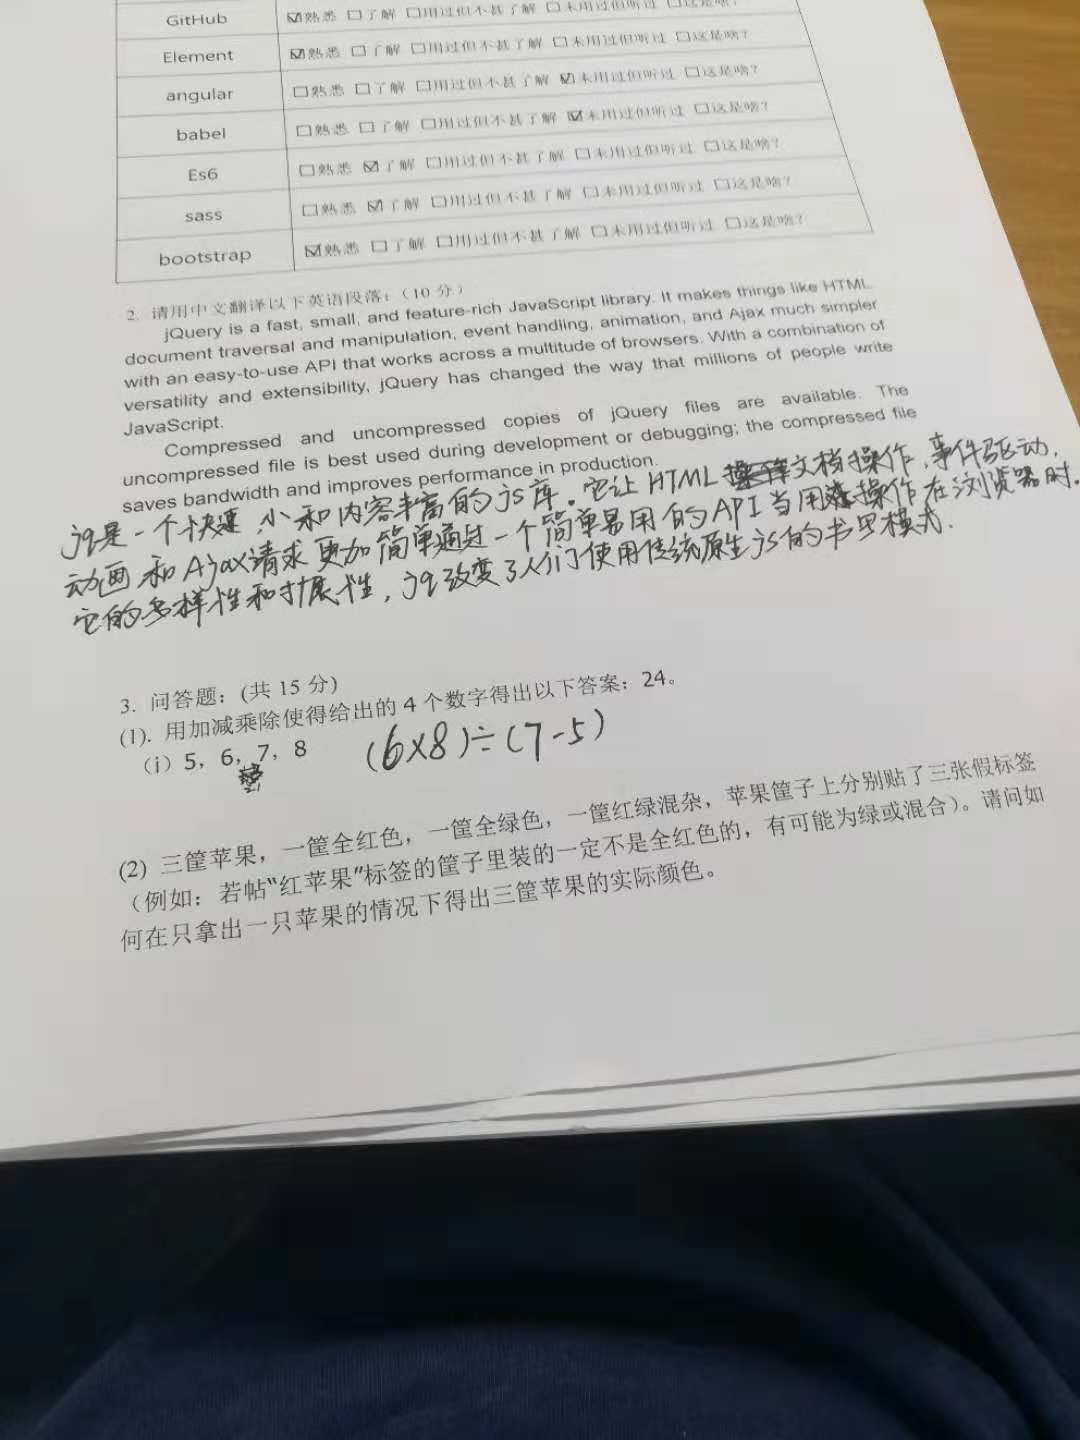 GitHub ☑熟悉 ☐了解 ☐用过但不甚了解 ☐未用过但听过 ☐这是啥?
Element ☑熟悉 ☐了解 ☐用过但不甚了解 ☐未用过但听过 ☐这是啥?
angular ☐熟悉 ☐了解 ☐用过但不甚了解 ☑未用过但听过 ☐这是啥?
babel ☐熟悉 ☐了解 ☐用过但不甚了解 ☑未用过但听过 ☐这是啥?
Es6 ☐熟悉 ☑了解 ☐用过但不甚了解 ☐未用过但听过 ☐这是啥?
sass ☐熟悉 ☑了解 ☐用过但不甚了解 ☐未用过但听过 ☐这是啥?
bootstrap ☑熟悉 ☐了解 ☐用过但不甚了解 ☐未用过但听过 ☐这是啥?
2. 请用中文翻译以下英语段落:(10 分)
jQuery is a fast, small, and feature-rich JavaScript library. It makes things like HTML
document traversal and manipulation, event handling, animation, and Ajax much simpler
with an easy-to-use API that works across a multitude of browsers. With a combination of
versatility and extensibility, jQuery has changed the way that millions of people write
JavaScript.
Compressed and uncompressed copies of jQuery files are available. The
uncompressed file is best used during development or debugging; the compressed file
saves bandwidth and improves performance in production.
jq是一个快速,小和内容丰富的js库。它让HTML文档操作,事件驱动,
动画和Ajax请求更加简单通过一个简单易用的API当用操作在浏览器时.
它的多样性和扩展性,jq改变了人们使用传统原生js的书写模式.
3. 问答题:(共 15 分)
(1). 用加减乘除使得给出的 4 个数字得出以下答案:24。
(i) 5, 6, 7, 8 (6×8)÷(7-5)
(2) 三筐苹果,一筐全红色,一筐全绿色,一筐红绿混杂,苹果筐子上分别贴了三张假标签
(例如:若帖“红苹果”标签的筐子里装的一定不是全红色的,有可能为绿或混合)。请问如
何在只拿出一只苹果的情况下得出三筐苹果的实际颜色。